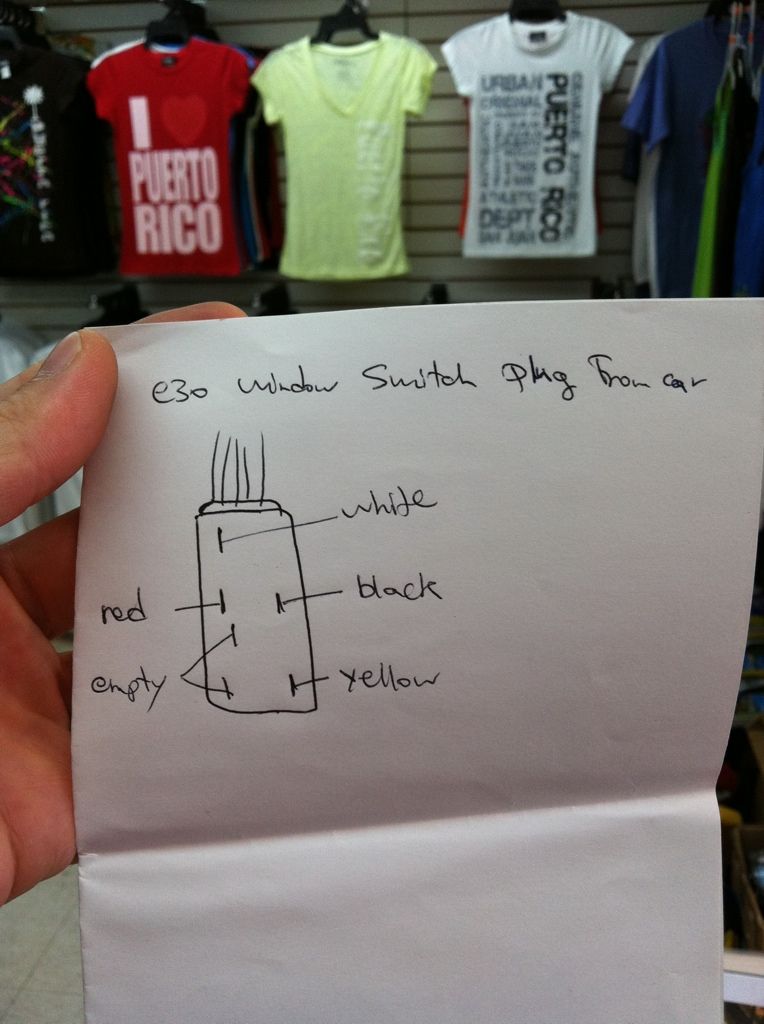 I
PUERTO
RICO
URBAN
ORIGINAL
ATHLETIC
DEPT
SAN JUAN
PUERTO RICO
e30 window Switch Plug From car
white
red
black
empty
yellow